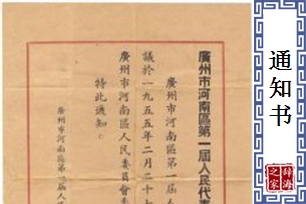 廣州市河南區第一屆人民代表
廣州市河南區第一屆人
議於一九五五年二月二十七
廣州市河南區人民委員會委
特此通知。
廣州市河南區第一屆人
通知书
辞海之家